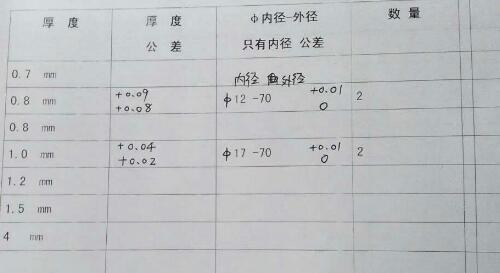 厚 度 厚 度 φ内径-外径 数 量
公 差 只有内径 公差
内径 外径
0.7 mm
0.8 mm +0.09 φ12 -70 +0.01 2
+0.08 0
0.8 mm
1.0 mm +0.04 φ17 -70 +0.01 2
+0.02 0
1.2 mm
1.5 mm
4 mm